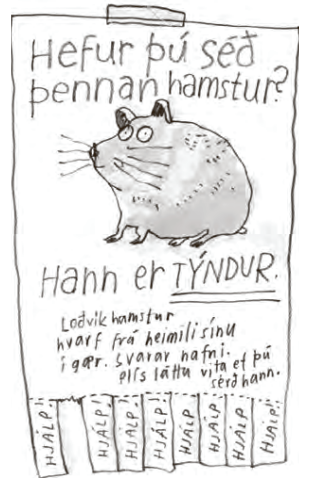 Hefur þú séð
þennan hamstur?
Hann er TÝNDUR.
Loðvik hamstur
hvarf frá heimili sínu
í gær. Svarar nafni.
plís láttu vita ef þú
sérð hann.
HJÁLP!
HJÁLP!
HJÁLP!
HJÁLP!
HJÁLP!
HJÁLP!
HJÁLP!